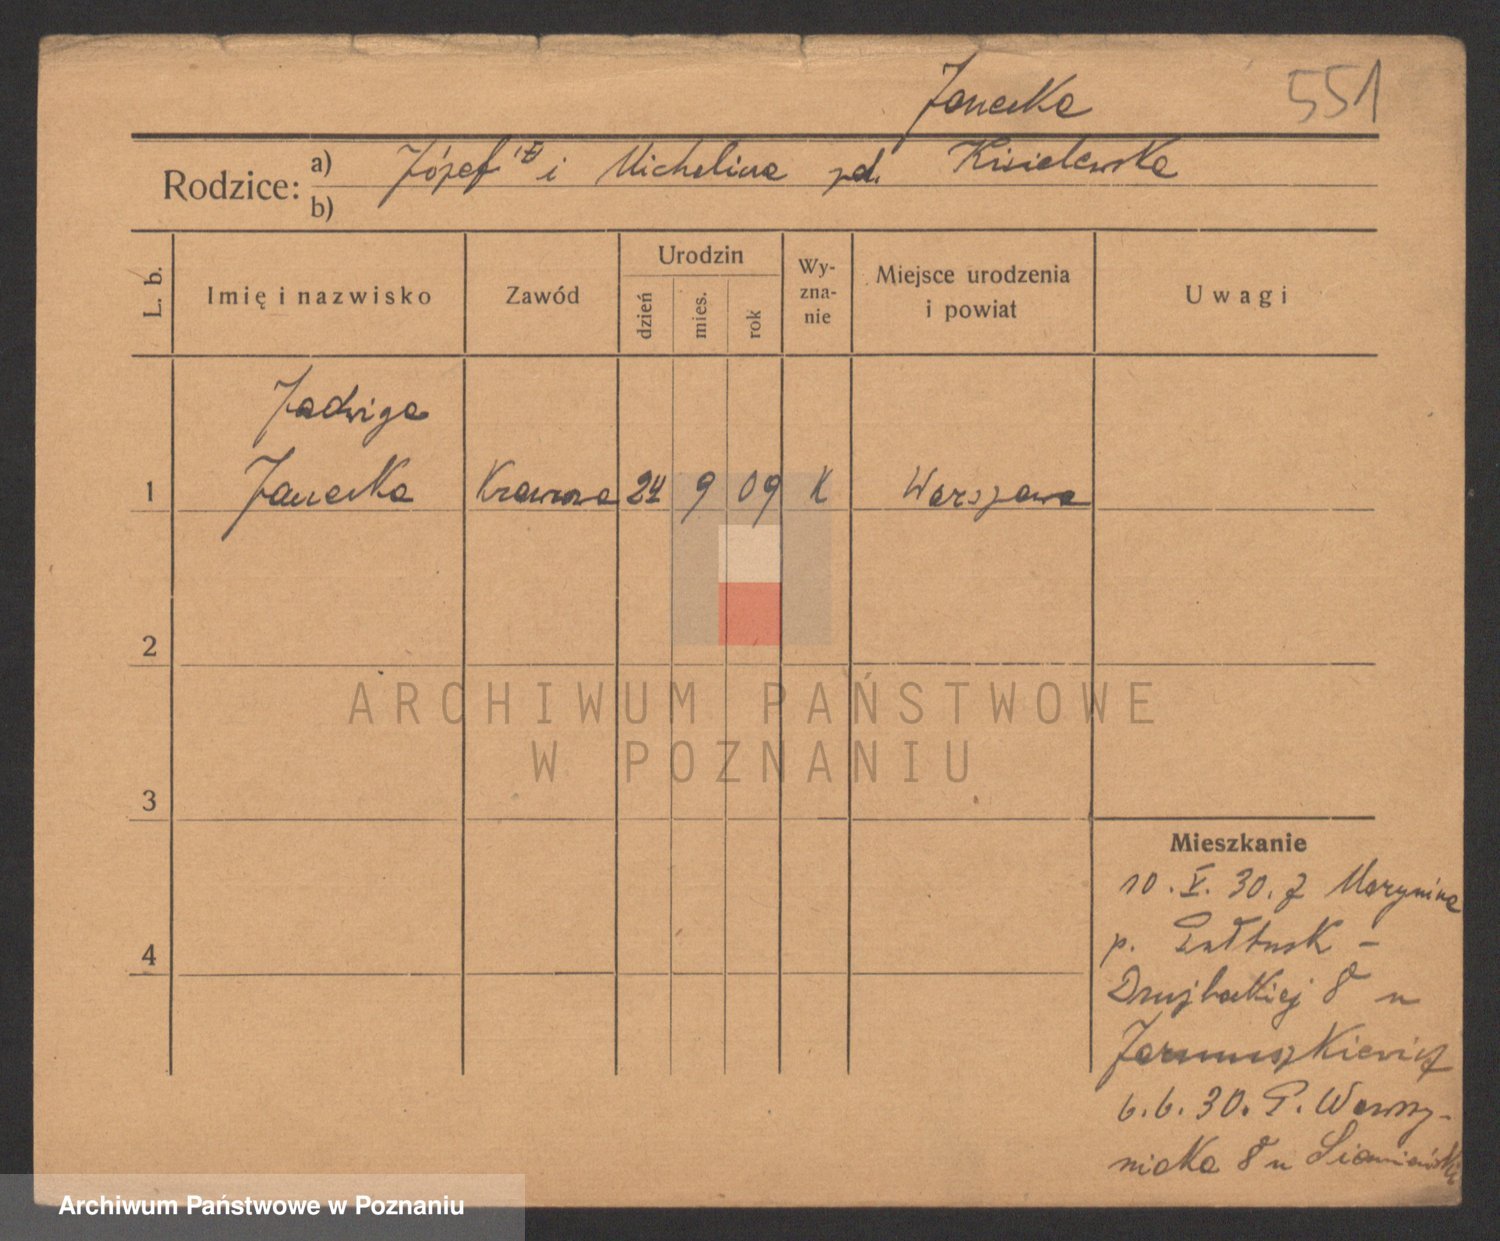 Janecka
551
Rodzice:
a) Józef i Michalina zd. Kisielewska
b)
L. b.
Imię i nazwisko
Zawód
Urodzin
dzień
mies.
rok
Wy-
zna-
nie
Miejsce urodzenia
i powiat
Uwagi
Jadwiga
1 Janecka Krawcowa 24 9 09 K Warszawa
2
3
4
Mieszkanie
10. V. 30. z Marynina
p. Pułtusk -
Drużbackiej 8 u
Jarmuszkiewicz
6.6.30. P. Wawrzy-
niaka 8 u
ARCHIWUM PAŃSTWOWE
W POZNANIU
Archiwum Państwowe w Poznaniu